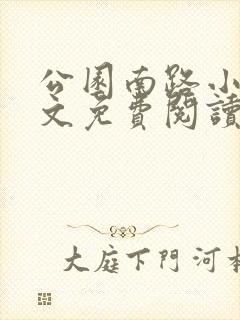 公園南路小
文免費閱讀
大庭下門河